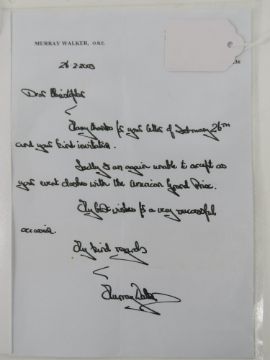 MURRAY WALKER, O.B.E.
26.2.2003
Dear Christopher
Many thanks for your letter of February 26TH
and your kind invitation.
Sadly I am again unable to accept as
your event clashes with the American Grand Prix.
My best wishes for a very successful
occasion.
My kind regards
Murray Walker